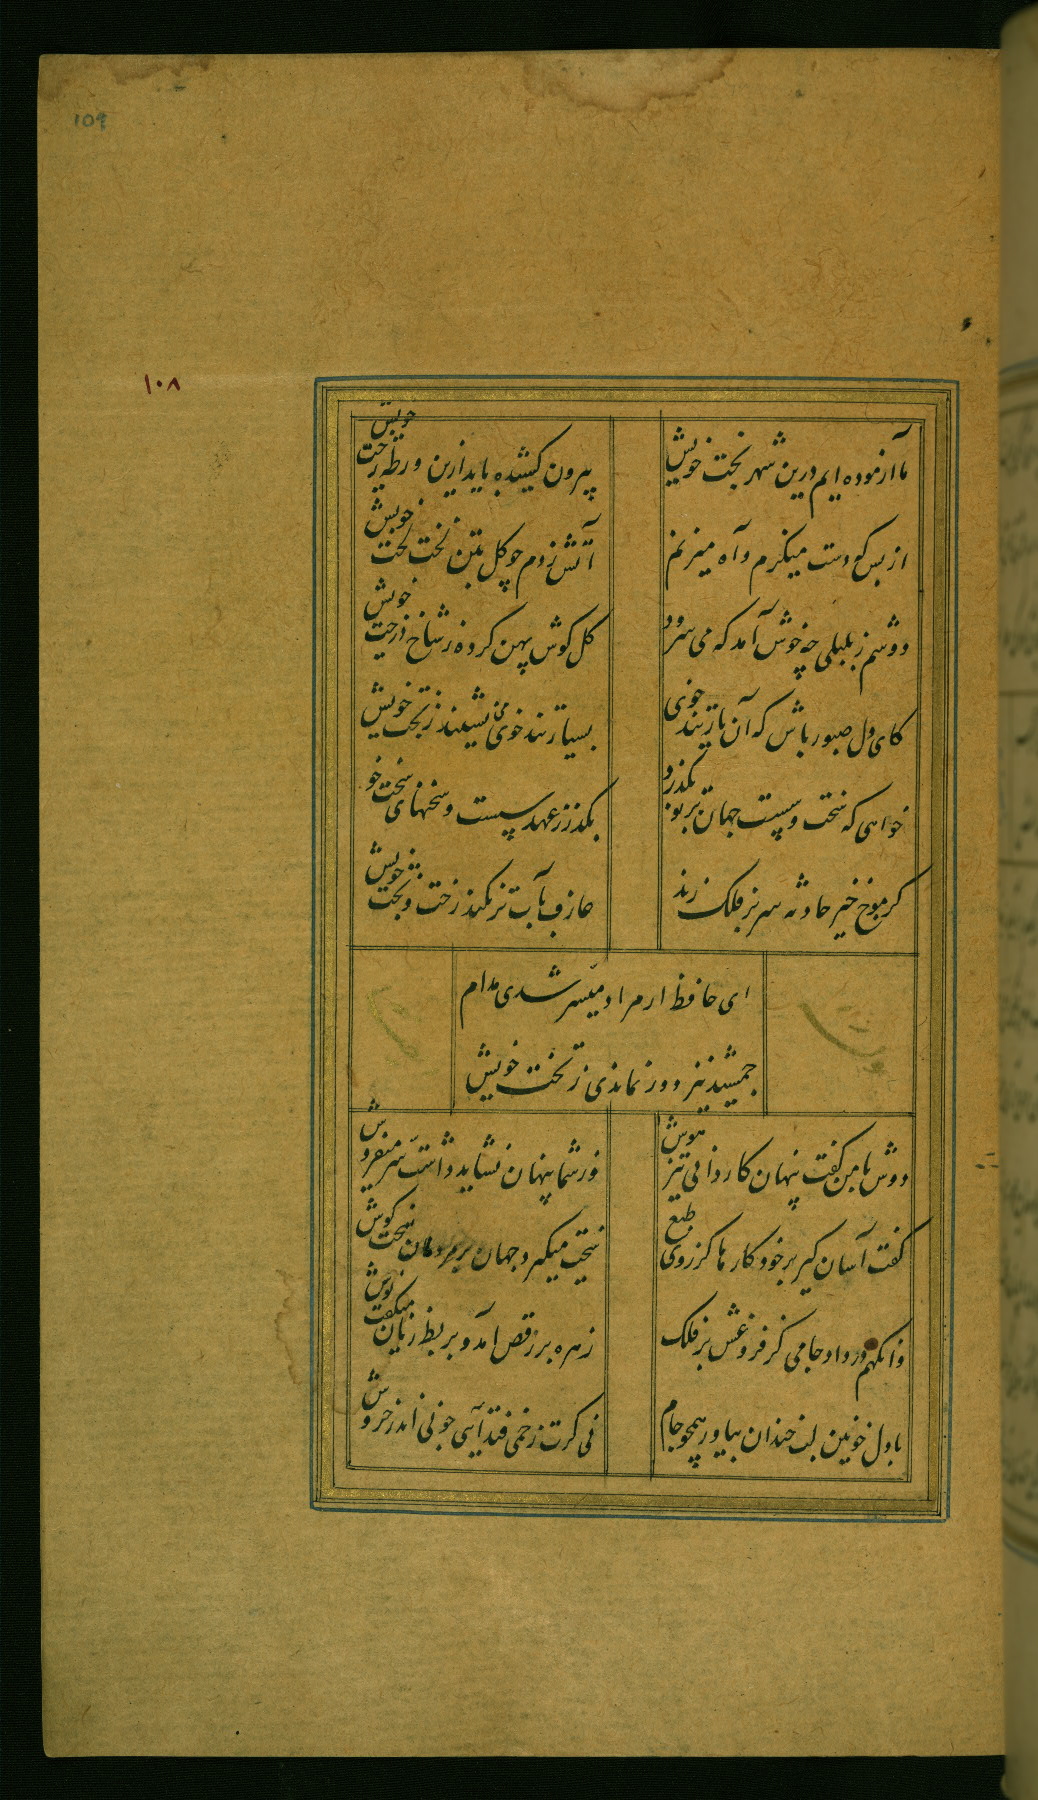 109
۱۰۸
ما آزموده ایم درین شهر بخت خویش
بیرون کشید باید ازین ورطه رخت خویش
از بس که دست میگزم و آه میزنم
آتش زدم چو گل بتن لخت لخت خویش
دوشم ز بلبلی چه خوش آمد که می سرود
گل گوش پهن کرده ز شاخ درخت خویش
کای دل صبور باش که آن یار تندخوی
بسیار تندخوی نشیند ز بخت خویش
خواهی که سخت و سست جهان بر تو بگذرد
بگذر ز عهد سست و سخنهای سخت خو
گر موج خیز حادثه سر بر فلک زند
عارف بآب تر نکند رخت و بخت خویش
ای حافظ ار مراد میسر شدی مدام
جمشید نیز دور نماندی ز تخت خویش
دوش با من گفت پنهان کاردانی تیز هوش
ور شما پنهان نشاید داشت سر میفروش
گفت آسان گیر بر خود کارها کز روی طبع
سخت میگیرد جهان بر مردمان سخت کوش
وانگهم در داد جامی کز فروغش بر فلک
زهره بر رقص آمد و بربط زنان میگفت نوش
با دل خونین لب خندان بیاور همچو جام
نی گرت زخمی فتد آیی چو نی اندر خروش